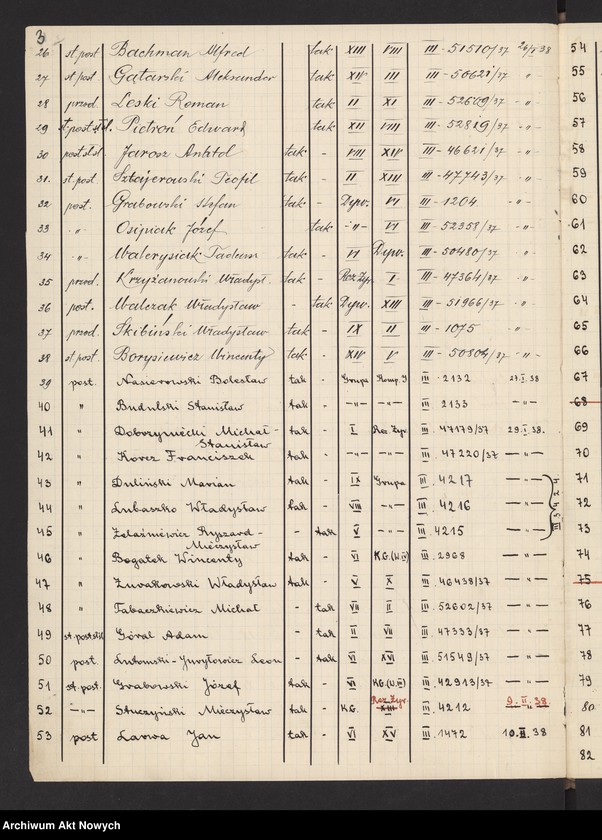 3
26 st. post Bachman Alfred tak XIII VIII III - 51510/37 26/I 38 54
27 st. post. Gatarski Aleksander tak XIV III III - 50621/37 " 55
28 przod Leski Roman tak II XI III - 52609/37 - " - 56
29 st. post. sł. śl. Pietroń Edward tak XII VIII III - 52819/37 - " - 57
30 post. sł. śl. Jarosz Anatol tak - VIII XIV III - 46621/37 - " - 58
31. st. post. Sztajerowski Teofil tak - II XIII III - 47743/37 - " - 59
32 post. Grabowski Stefan tak - Dyw. VI III - 1204 - " - 60
33 - " - Osipiak Józef tak - " - VI III - 52358/37 - " - 61
34 - " - Walerysiak Tadeusz tak - VI Dyw. III - 50480/37 - " - 62
35 przod. Krzyżanowski Władysł. tak - Rez Żyw. I III - 47364/37 - " - 63
36 post. Walczak Władysław - tak Dyw. XIII III - 51966/37 - " - 64
37 przod. Skibiński Władysław tak - IX II III - 1075 - " - 65
38 st. post. Borysiewicz Wincenty tak - XIV V III - 50804/37 - " - 66
39 post. Nasierowski Bolesław tak - Grupa Komp. I III . 2132 27.I.38 67
40 " Budulski Stanisław tak - — " — — " — III . 2133 — " — 68
41 " Dobrzyniecki Michał-
Stanisław tak - I Rez Żyw. III . 47179/37 29.I.38. 69
42 " Korcz Franciszek tak - — " — — " — III . 47220/37 — " — 70
43 " Duliński Marian tak - IX Grupa III . 4217 — " — 71
44 " Lubaszko Władysław tak - VIII — " — III . 4216 — " — III 5424 72
45 " Żelaśniewicz Ryszard-
Mieczysław - tak V — " — III . 4215 — " — 73
46 " Bogatek Wincenty tak - VI K.G. III . 2968 — " — 74
47 " Żurakowski Władysław tak - V X III . 46438/37 — " — 75
48 " Tabaczkiewicz Michał - tak VII II III . 52602/37 — " — 76
49 st. post. sł. śl. Góral Adam - tak II VII III . 47333/37 — " — 77
50 post. Leon - tak VI XVI III . 51549/37 — " — 78
51 st. post. Grabowski Józef tak - VI K.G. III . 42913/37 — " — 79
52 — " — Mieczysław tak - K.G. Rez. Żyw. XIII III . 4212 9. II. 38. — " — 80
53 post Larwa Jan " tak - VI XV III . 1472 10.II. 38 81
82
Archiwum Akt Nowych